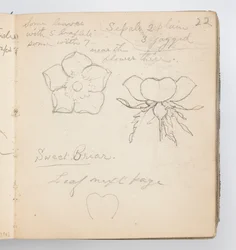 22
Some leaves
with 5 leaflets
some with 7
Sepals 2 plain
3 jagged
near the
flower
Sweet Briar.
Leaf next page